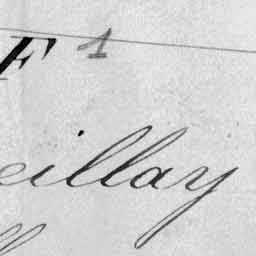 F 1
eillay